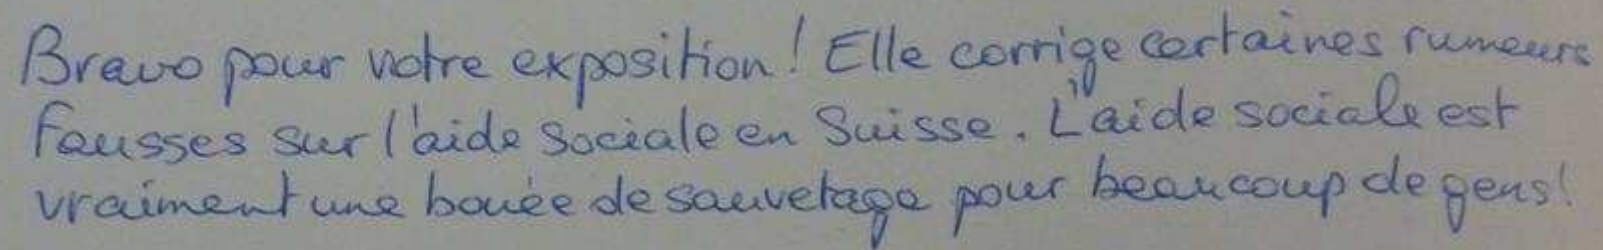 Bravo pour votre exposition! Elle corrige certaines rumeurs
fausses sur l'aide sociale en Suisse. L'aide sociale est
vraiment une bouée de sauvetage pour beaucoup de gens!